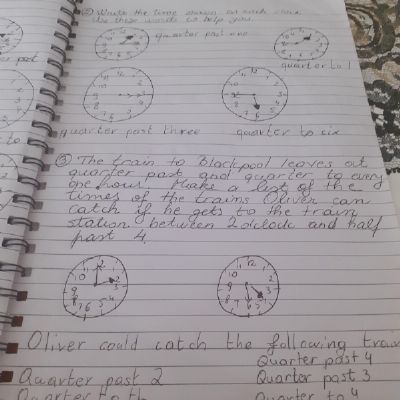 ② Write the time shown on each clock.
Use these words to help you.
quarter past one
quarter to 1
past
to
quarter past three
quarter to six
③ The train to blackpool leaves at
quarter past and quarter to every
one hour. Make a list of the
times of the trains Oliver can
catch if he gets to the train
station between 2 o'clock and half
past 4.
Oliver could catch the following train
Quarter past 4
Quarter past 2
Quarter past 3
Quarter to
Quarter to 4